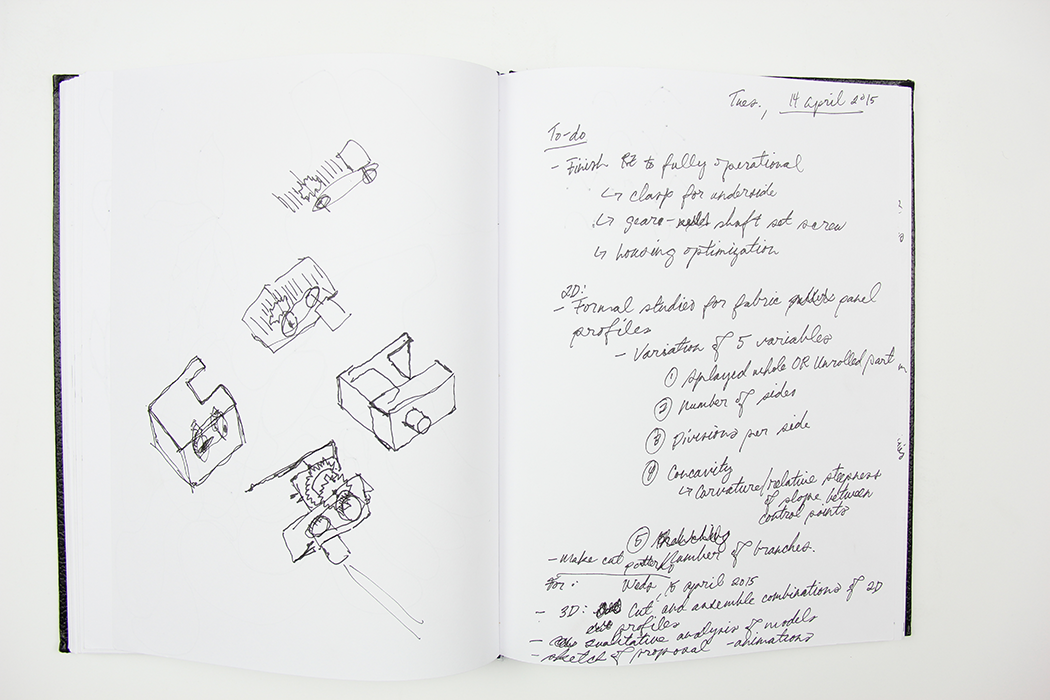 Tues., 14 April 2015
To-do
- Finish to fully operational
↳ clasp for underside
↳ gear - shaft set screw
↳ housing optimization
2D:
- Formal studies for fabric panel
profiles
- Variation of 5 variables
① Splayed whole OR Unrolled part
② Number of sides
③ Divisions per side
④ Concavity
↳ Curvature/relative steepness
of slope between
control points
⑤ Number of branches.
- Make cut pattern
For: Weds, 15 April 2015
- 3D: Cut and assemble combinations of 2D
profiles
- qualitative analysis of models
- sketch of proposal - animations